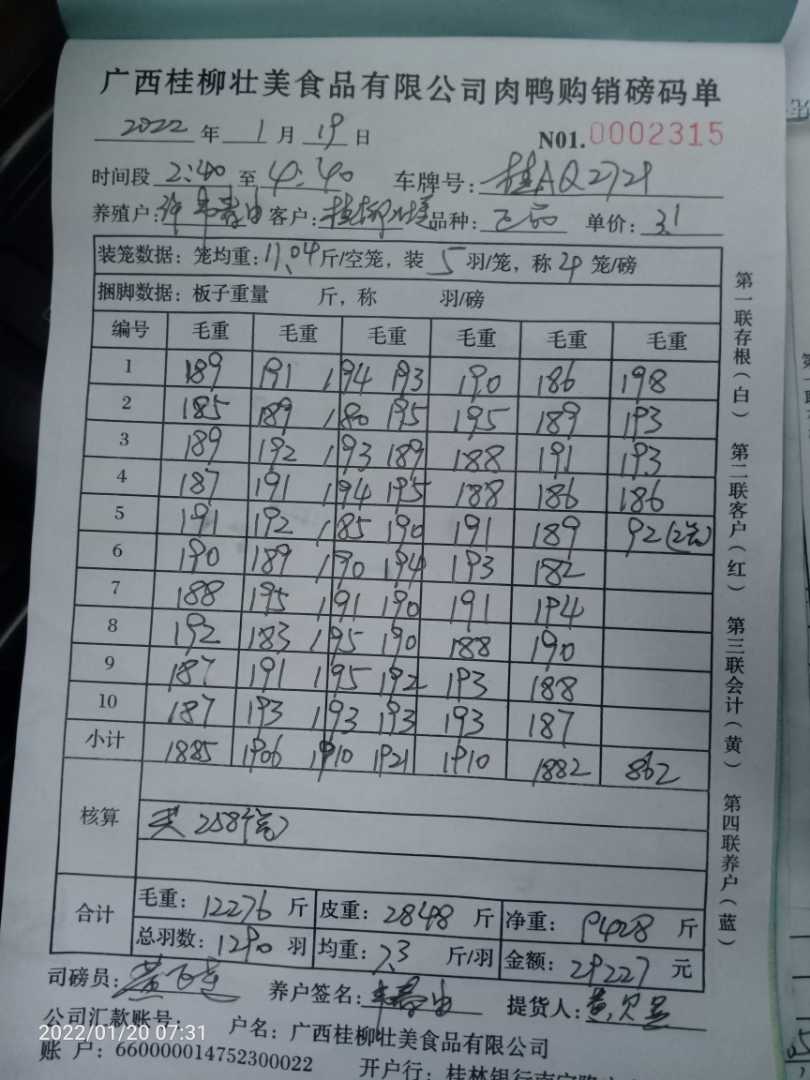 广西桂柳壮美食品有限公司肉鸭购销磅码单
2022 年 1 月 19 日 N01.0002315
时间段 2:40 至 4:40 车牌号: 桂AQ2721
养殖户: 客户: 桂柳 品种: 单价: 3.1
装笼数据: 笼均重: 11.04 斤/空笼, 装 5 羽/笼, 称 4 笼/磅
捆脚数据: 板子重量 斤, 称 羽/磅
编号 毛重 毛重 毛重 毛重 毛重 毛重
1 189 191 194 193 190 186 198
2 185 189 180 195 195 189 193
3 189 192 193 189 188 191 193
4 187 191 194 195 188 186 186
5 191 192 185 190 191 189 92
6 190 189 190 194 193 182
7 188 195 191 190 191 194
8 192 183 195 190 188 190
9 187 191 195 192 193 188
10 187 193 193 193 193 187
小计 1885 1906 1910 1921 1910 1882 862
核算
258
合计 毛重: 12276 斤 皮重: 2848 斤 净重: 9428 斤
总羽数: 1290 羽 均重: 7.3 斤/羽 金额: 29227 元
司磅员: 养户签名: 提货人:
公司汇款账号: 户名: 广西桂柳壮美食品有限公司
账 户: 660000014752300022 开户行: 桂林银行南宁
2022/01/20 07:31
第一联存根(白) 第二联客户(红) 第三联会计(黄) 第四联养户(蓝)